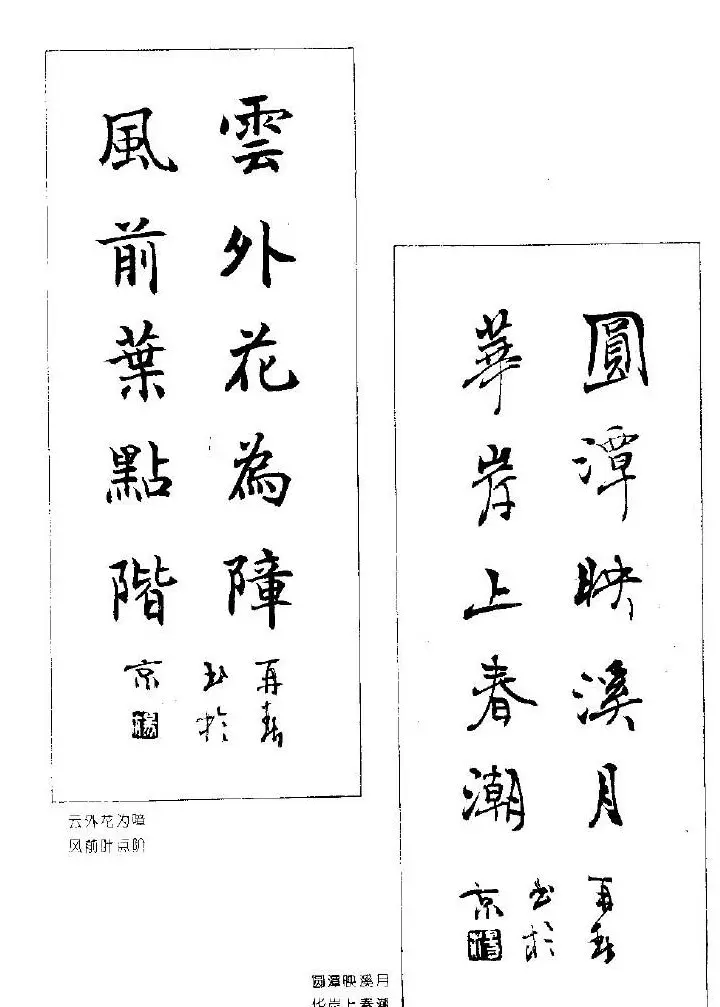 雲外花為障
風前葉點階
再春
书於
京
楊
云外花为嶂
风前叶点阶
圓潭映溪月
華岸上春潮
再春
书於
京
楊
圆潭映溪月
华岸上春潮